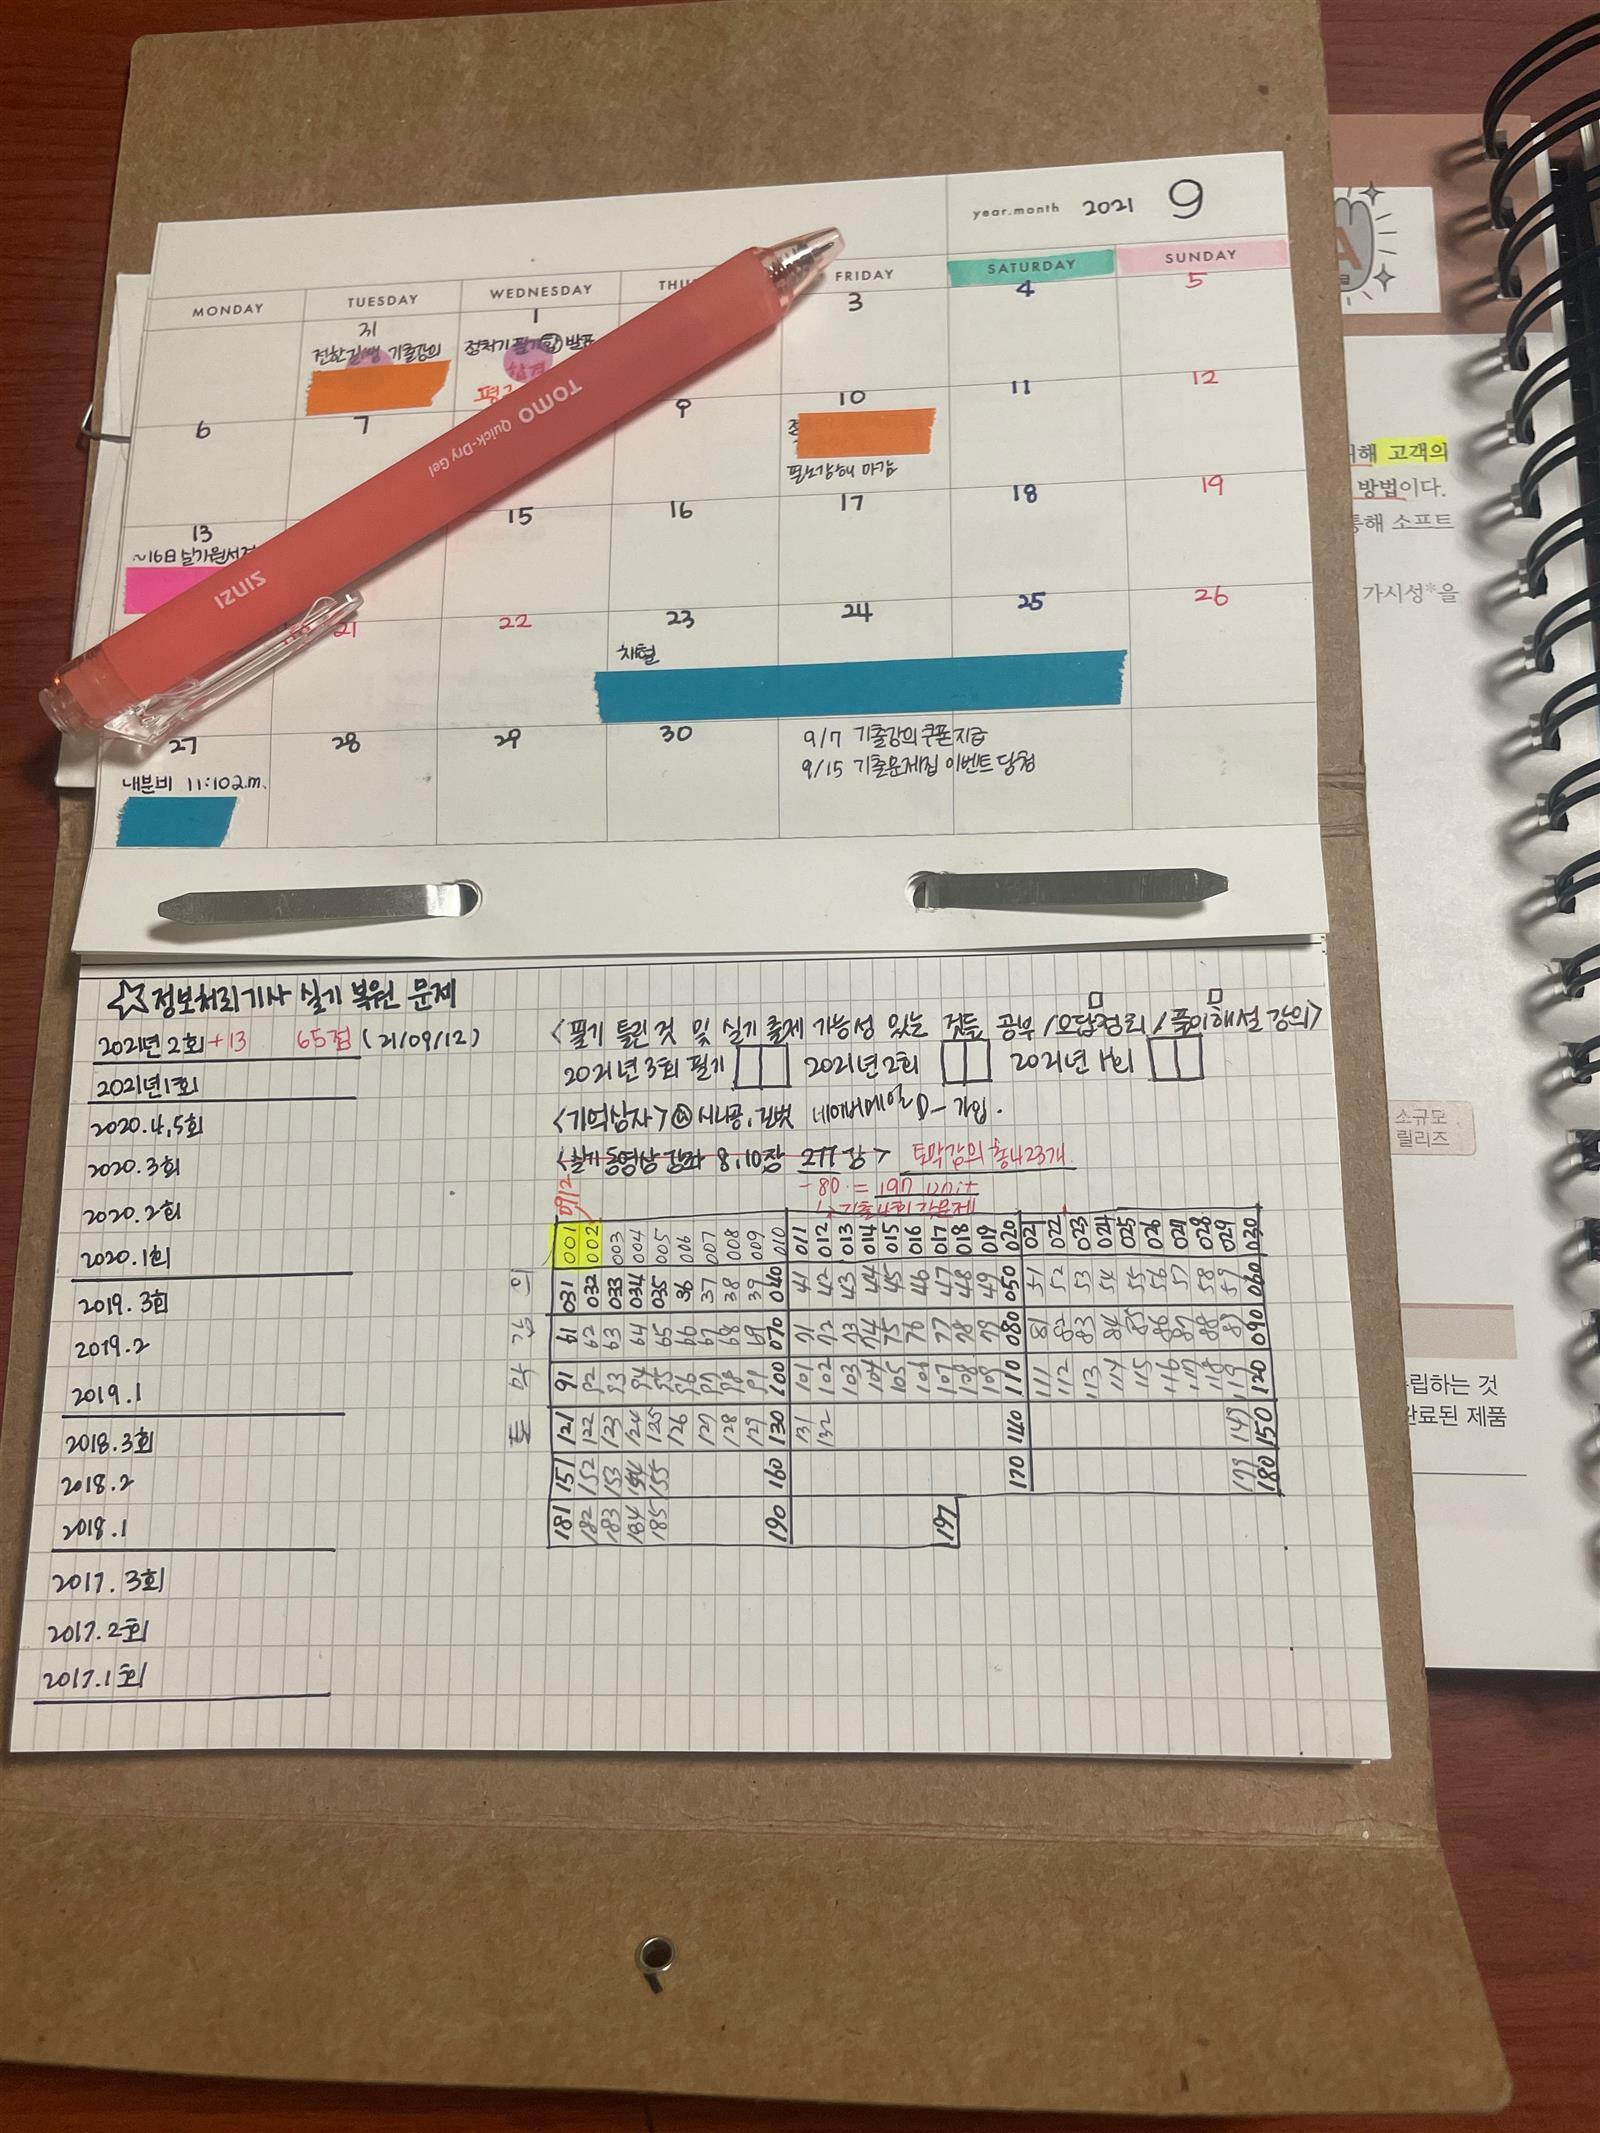 year.month 2021 9
MONDAY TUESDAY WEDNESDAY FRIDAY SATURDAY SUNDAY
31 1 3 4 5
기출강의
발표
합격
6 7 9 10 11 12
마감
13 15 16 17 18 19
~16日
21 22 23 24 25 26
채혈
27 28 29 30
내분비 11:10a.m.
9/7 기출강의 쿠폰지급
9/15 기출문제집 이벤트 당첨
TOMO Quick-Dry Gel
ZINIZ
☆정보처리기사 실기 복원 문제
2021년 2회 +13 65점 (21/09/12)
2021년 1회
2020.4,5회
2020.3회
2020.2회
2020.1회
2019.3회
2019.2
2019.1
2018.3회
2018.2
2018.1
2017.3회
2017.2회
2017.1회
<필기 틀린 것 및 실기 출제 가능성 있는 것들 공부 /오답정리 /풀이해설 강의>
2021년 3회 필기 2021년 2회 2021년 1회
<기억상자> 시나공, 길벗 네이버메일 가입.
<실기 동영상 강좌 8,10장 277강> 토막강의 총 423개
-80 = 197 unit
0912
토막강의
001 002 003 004 005 006 007 008 009 010 011 012 013 014 015 016 017 018 019 020 021 022 023 024 025 026 027 028 029 030
031 032 033 034 035 36 37 38 39 040 41 42 43 44 45 46 47 48 49 050 51 52 53 54 55 56 57 58 59 060
61 62 63 64 65 66 67 68 69 070 71 72 73 74 75 76 77 78 79 080 81 82 83 84 85 86 87 88 89 090
91 92 93 94 95 96 97 98 99 100 101 102 103 104 105 106 107 108 109 110 111 112 113 114 115 116 117 118 119 120
121 122 123 124 125 126 127 128 129 130 131 132 140 149 150
151 152 153 154 155 160 170 179 180
181 182 183 184 185 190 197
해 고객의
방법이다.
통해 소프트
가시성*을
소규모
릴리즈
립하는 것
완료된 제품